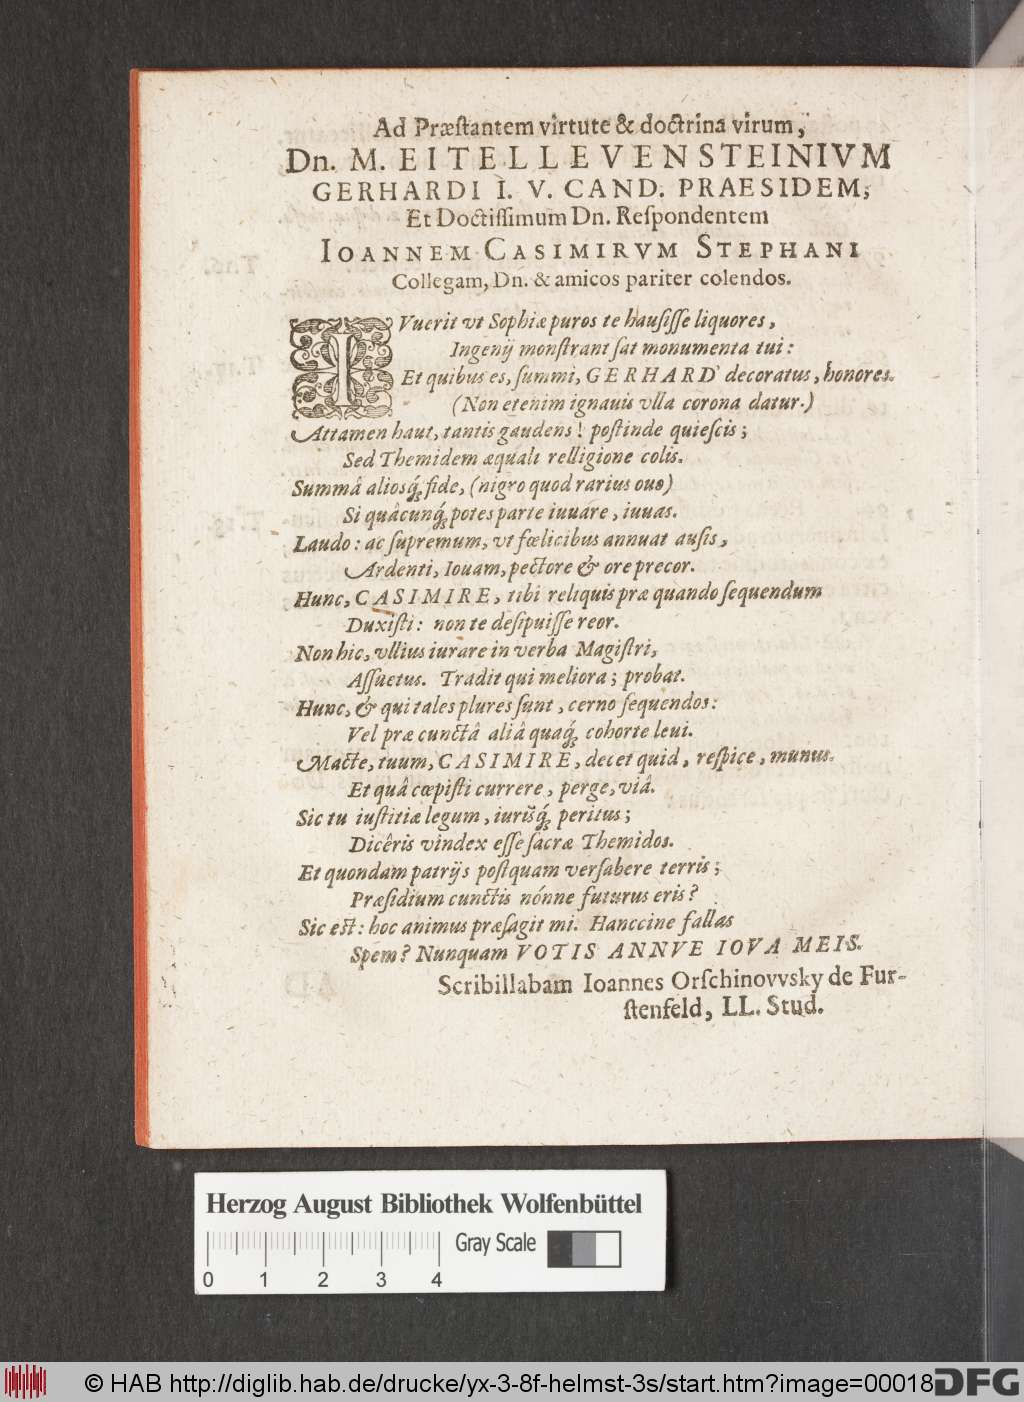 Ad Præſtantem virtute & doctrina virum,
Dn. M. EITELLEVENSTEINIVM
GERHARDI I. V. CAND. PRAESIDEM,
Et Doctiſſimum Dn. Reſpondentem
IOANNEM CASIMIRVM STEPHANI
Collegam, Dn. & amicos pariter colendos.
IVuerit vt Sophiæ puros te hauſiſſe liquores,
Ingenij monſtrant ſat monumenta tui:
Et quibus es, ſummi, GERHARD' decoratus, honores.
(Non etenim ignauis vlla corona datur.)
Attamen haut, tantis gaudens! poſtinde quieſcis;
Sed Themidem æquali relligione colis.
Summâ aliosq́; fide, (nigro quod rarius ouo)
Si quâcunq́; potes parte iuuare, iuuas.
Laudo: ac ſupremum, vt fœlicibus annuat auſis,
Ardenti, Iouam, pectore & ore precor.
Hunc, CASIMIRE, tibi reliquis præ quando ſequendum
Duxiſti: non te deſipuiſſe reor.
Non hic, vllius iurare in verba Magiſtri,
Aſſuetus. Tradit qui meliora; probat.
Hunc, & qui tales plures ſunt, cerno ſequendos:
Vel præ cunctâ aliâ quaq́; cohorte leui.
Macte, tuum, CASIMIRE, decet quid, reſpice, munus.
Et quâ cœpiſti currere, perge, viâ.
Sic tu iuſtitiæ legum, iurisq́; peritus;
Dicêris vindex eſſe ſacræ Themidos.
Et quondam patrijs poſtquam verſabere terris;
Præſidium cunctis nónne futurus eris?
Sic eſt: hoc animus præſagit mi. Hanccine fallas
Spem? Nunquam VOTIS ANNVE IOVA MEIS.
Scribillabam Ioannes Orſchinovvsky de Fur-
ſtenfeld, LL. Stud.
Herzog August Bibliothek Wolfenbüttel
Gray Scale
0 1 2 3 4
© HAB http://diglib.hab.de/drucke/yx-3-8f-helmst-3s/start.htm?image=00018
DFG